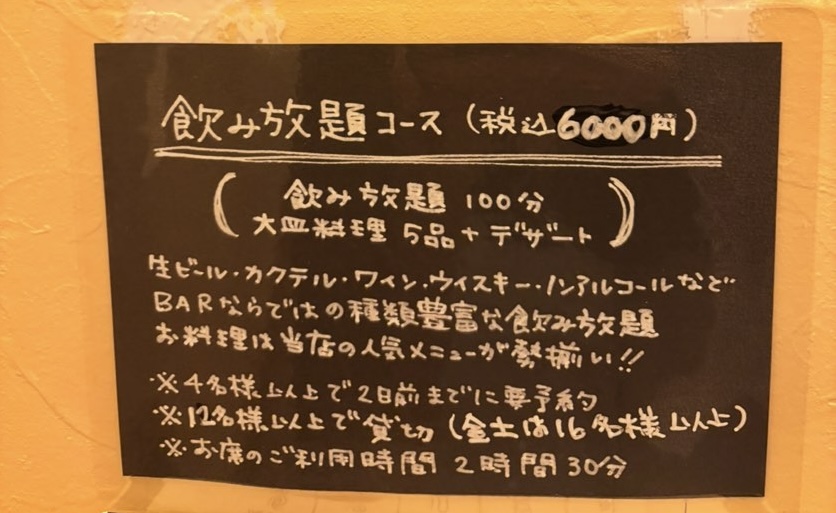 飲み放題コース (税込6000円)
飲み放題 100分
大皿料理 5品+デザート
生ビール・カクテル・ワイン・ウイスキー・ノンアルコールなど
BARならではの種類豊富な飲み放題
お料理は当店の人気メニューが勢揃い!!
※4名様以上で2日前までに要予約
※12名様以上で貸切 (金土は16名様以上)
※お席のご利用時間 2時間30分